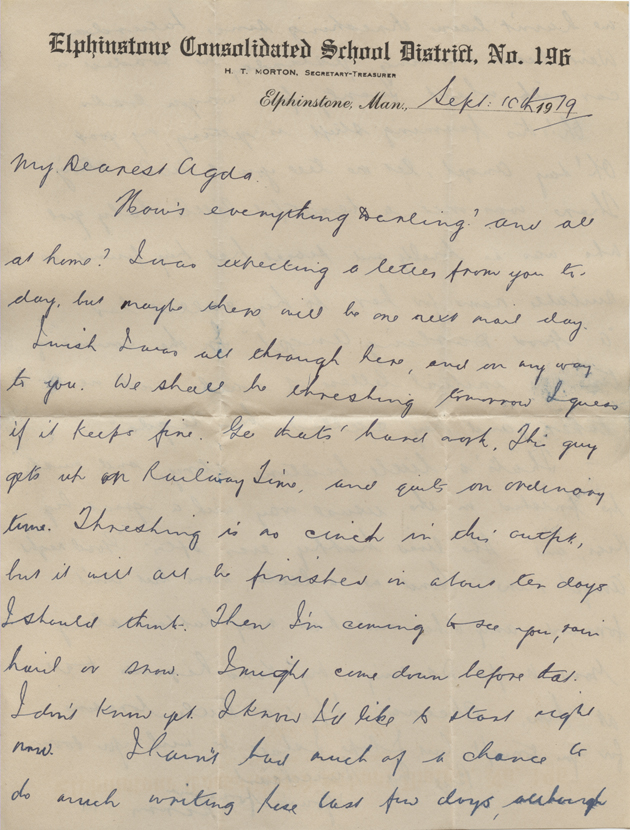 Elphinstone Consolidated School District, No. 196
H. T. MORTON, SECRETARY-TREASURER
Elphinstone, Man., Sept. 10th 1919
My Dearest Agda.
How's everything Darling? and all
at home? I was expecting a letter from you to-
day, but maybe there will be one next mail day.
I wish I was all through here, and on my way
to you. We shall be threshing tomorrow I guess
if it keeps fine. Ge thats' hard work, This guy
gets up on Railway Time, and quits on ordinary
time. Threshing is no cinch in this outfit,
but it will all be finished in about ten days
I should think. Then I'm coming to see you, rain
hail or snow. I might come down before that.
I don't know yet. I know I'd like to start right
now. I havn't had much of a chance to
do much writing these last few days, although